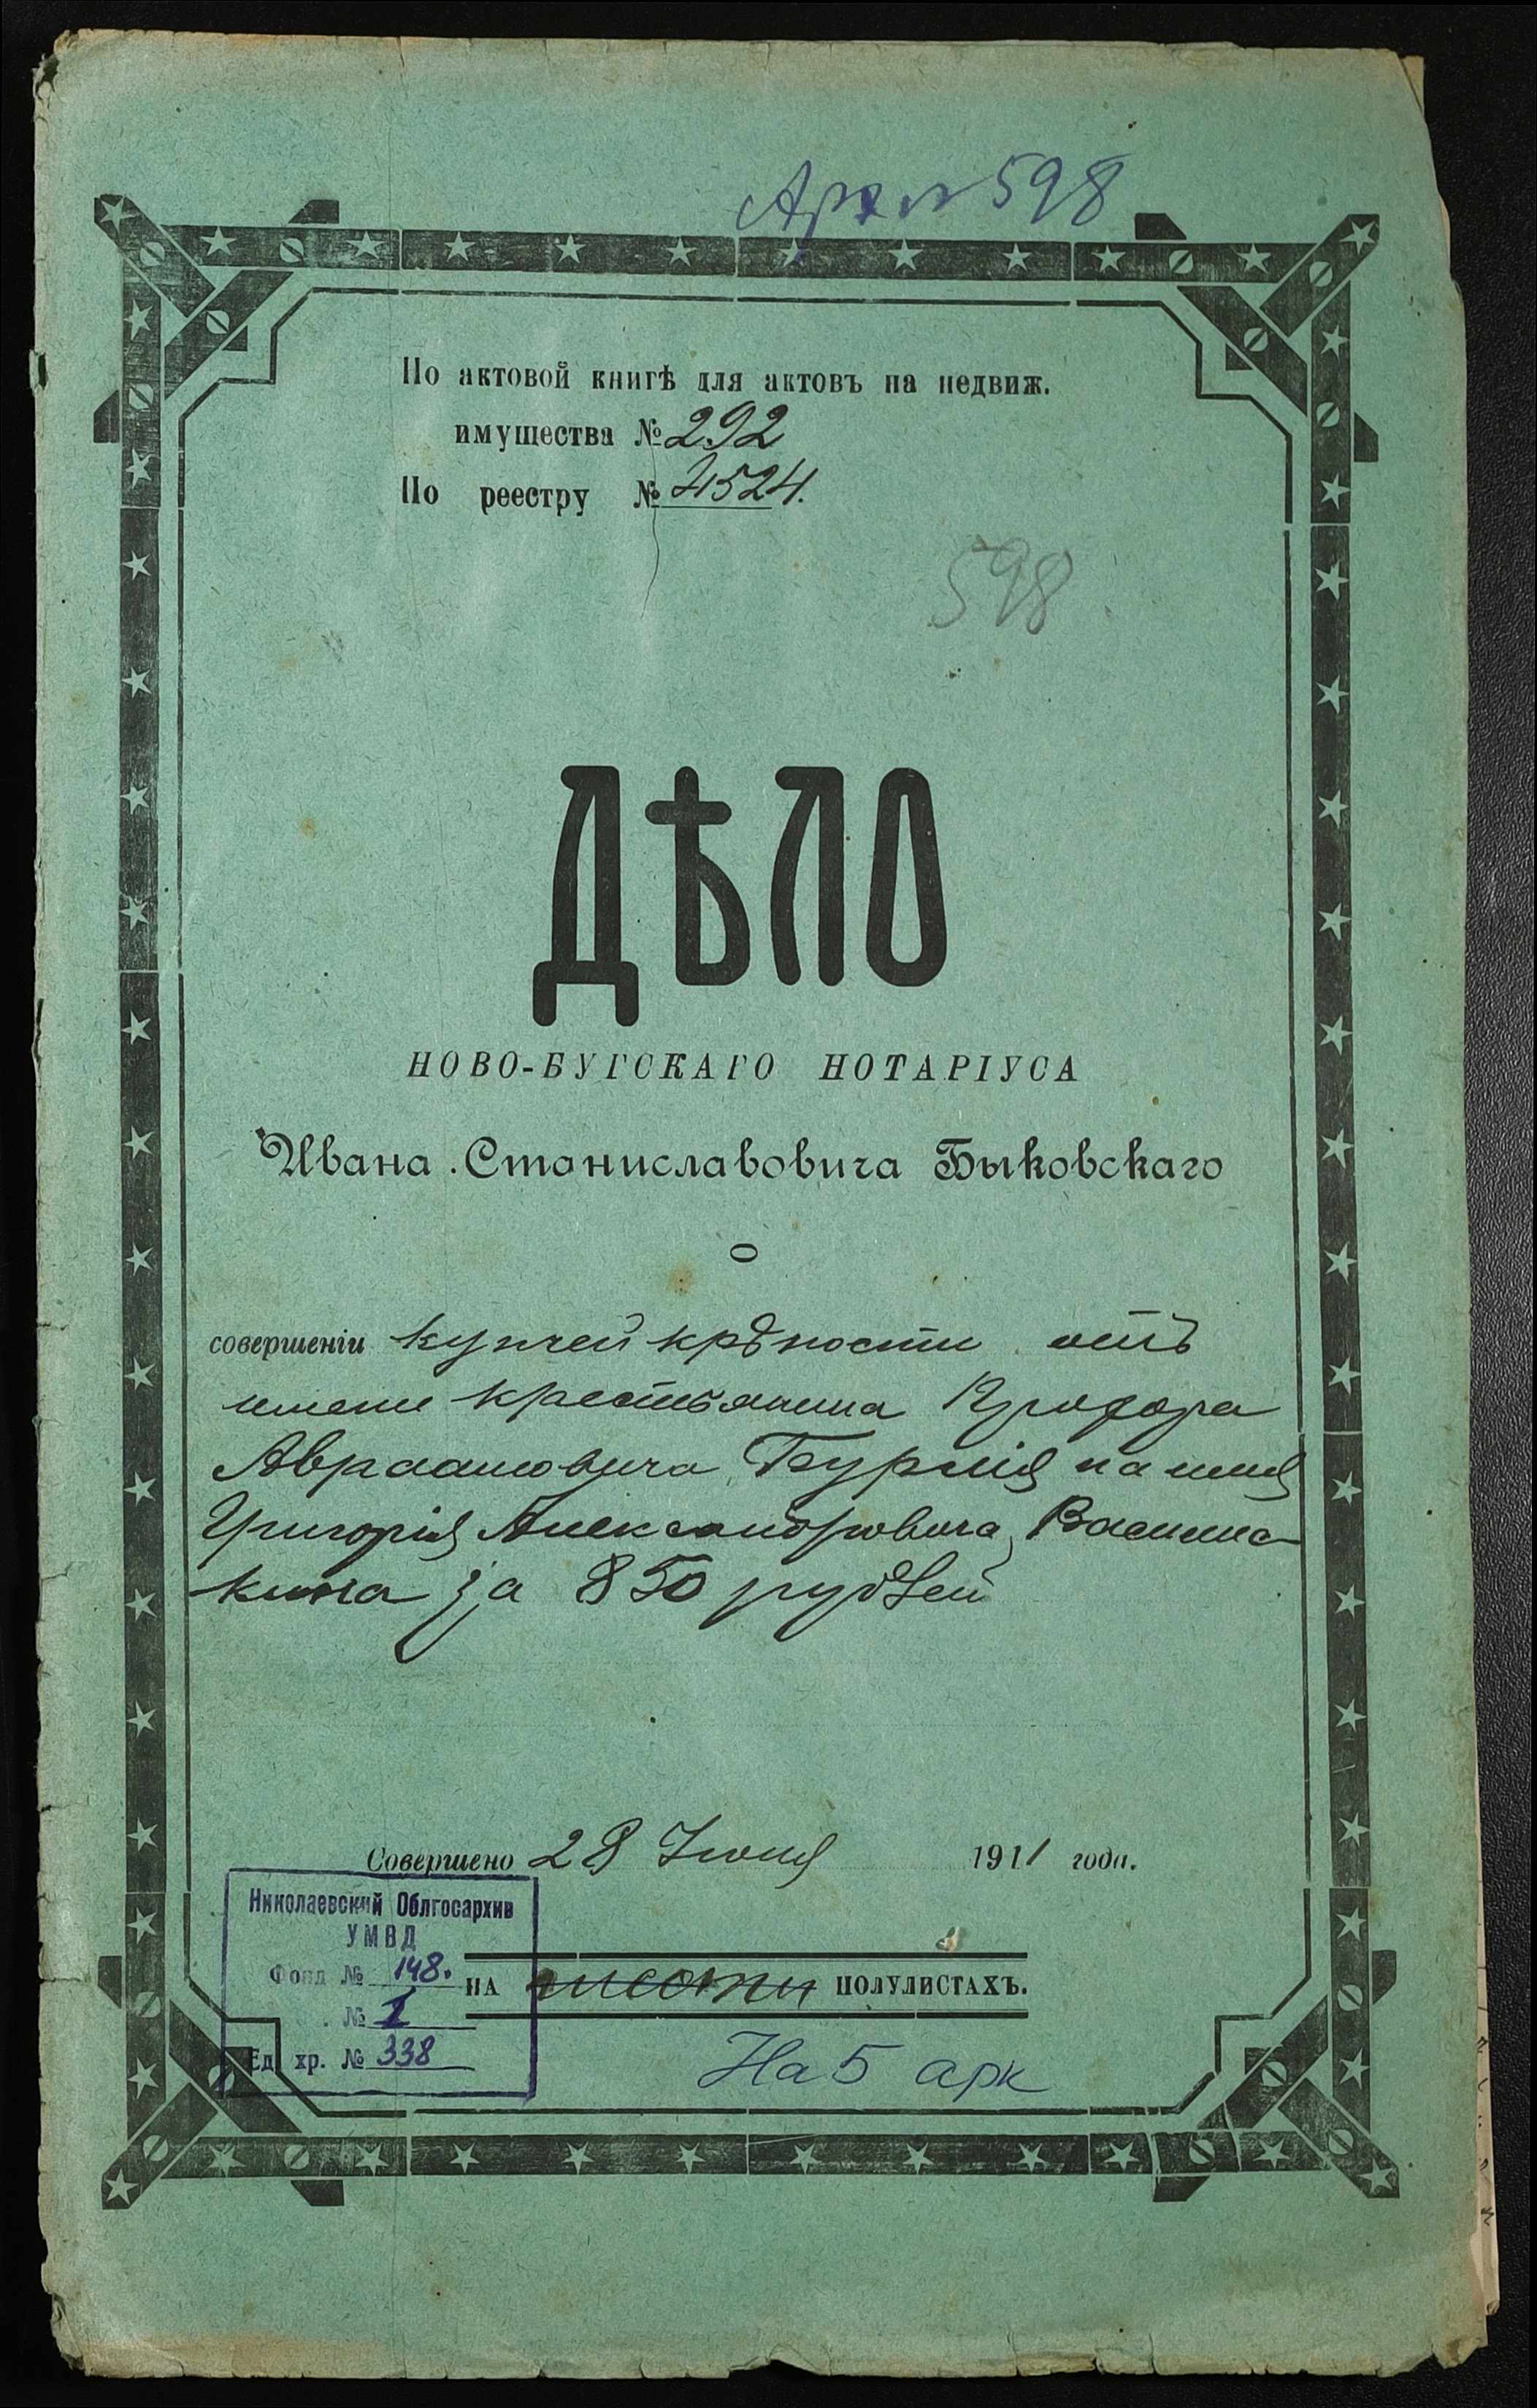 Арх № 598
По актовой книгѣ для актовъ на недвиж.
имущества № 292
По реестру № 4524.
598
ДѢЛО
НОВО-БУГСКАГО НОТАРІУСА
Ивана Станиславовича Быковскаго
о
совершеніи купчей крѣпости отъ
имени крестьянина Прохора
Авраамовича Бурлія на имя
Григорія Александровича Васила-
кина за 850 рублей
Совершено 28 Іюня 1911 года.
Николаевский Облгосархив
УМВД
Фонд № 148.
№ 1
Ед хр. № 338
НА шести ПОЛУЛИСТАХЪ.
На 5 арк